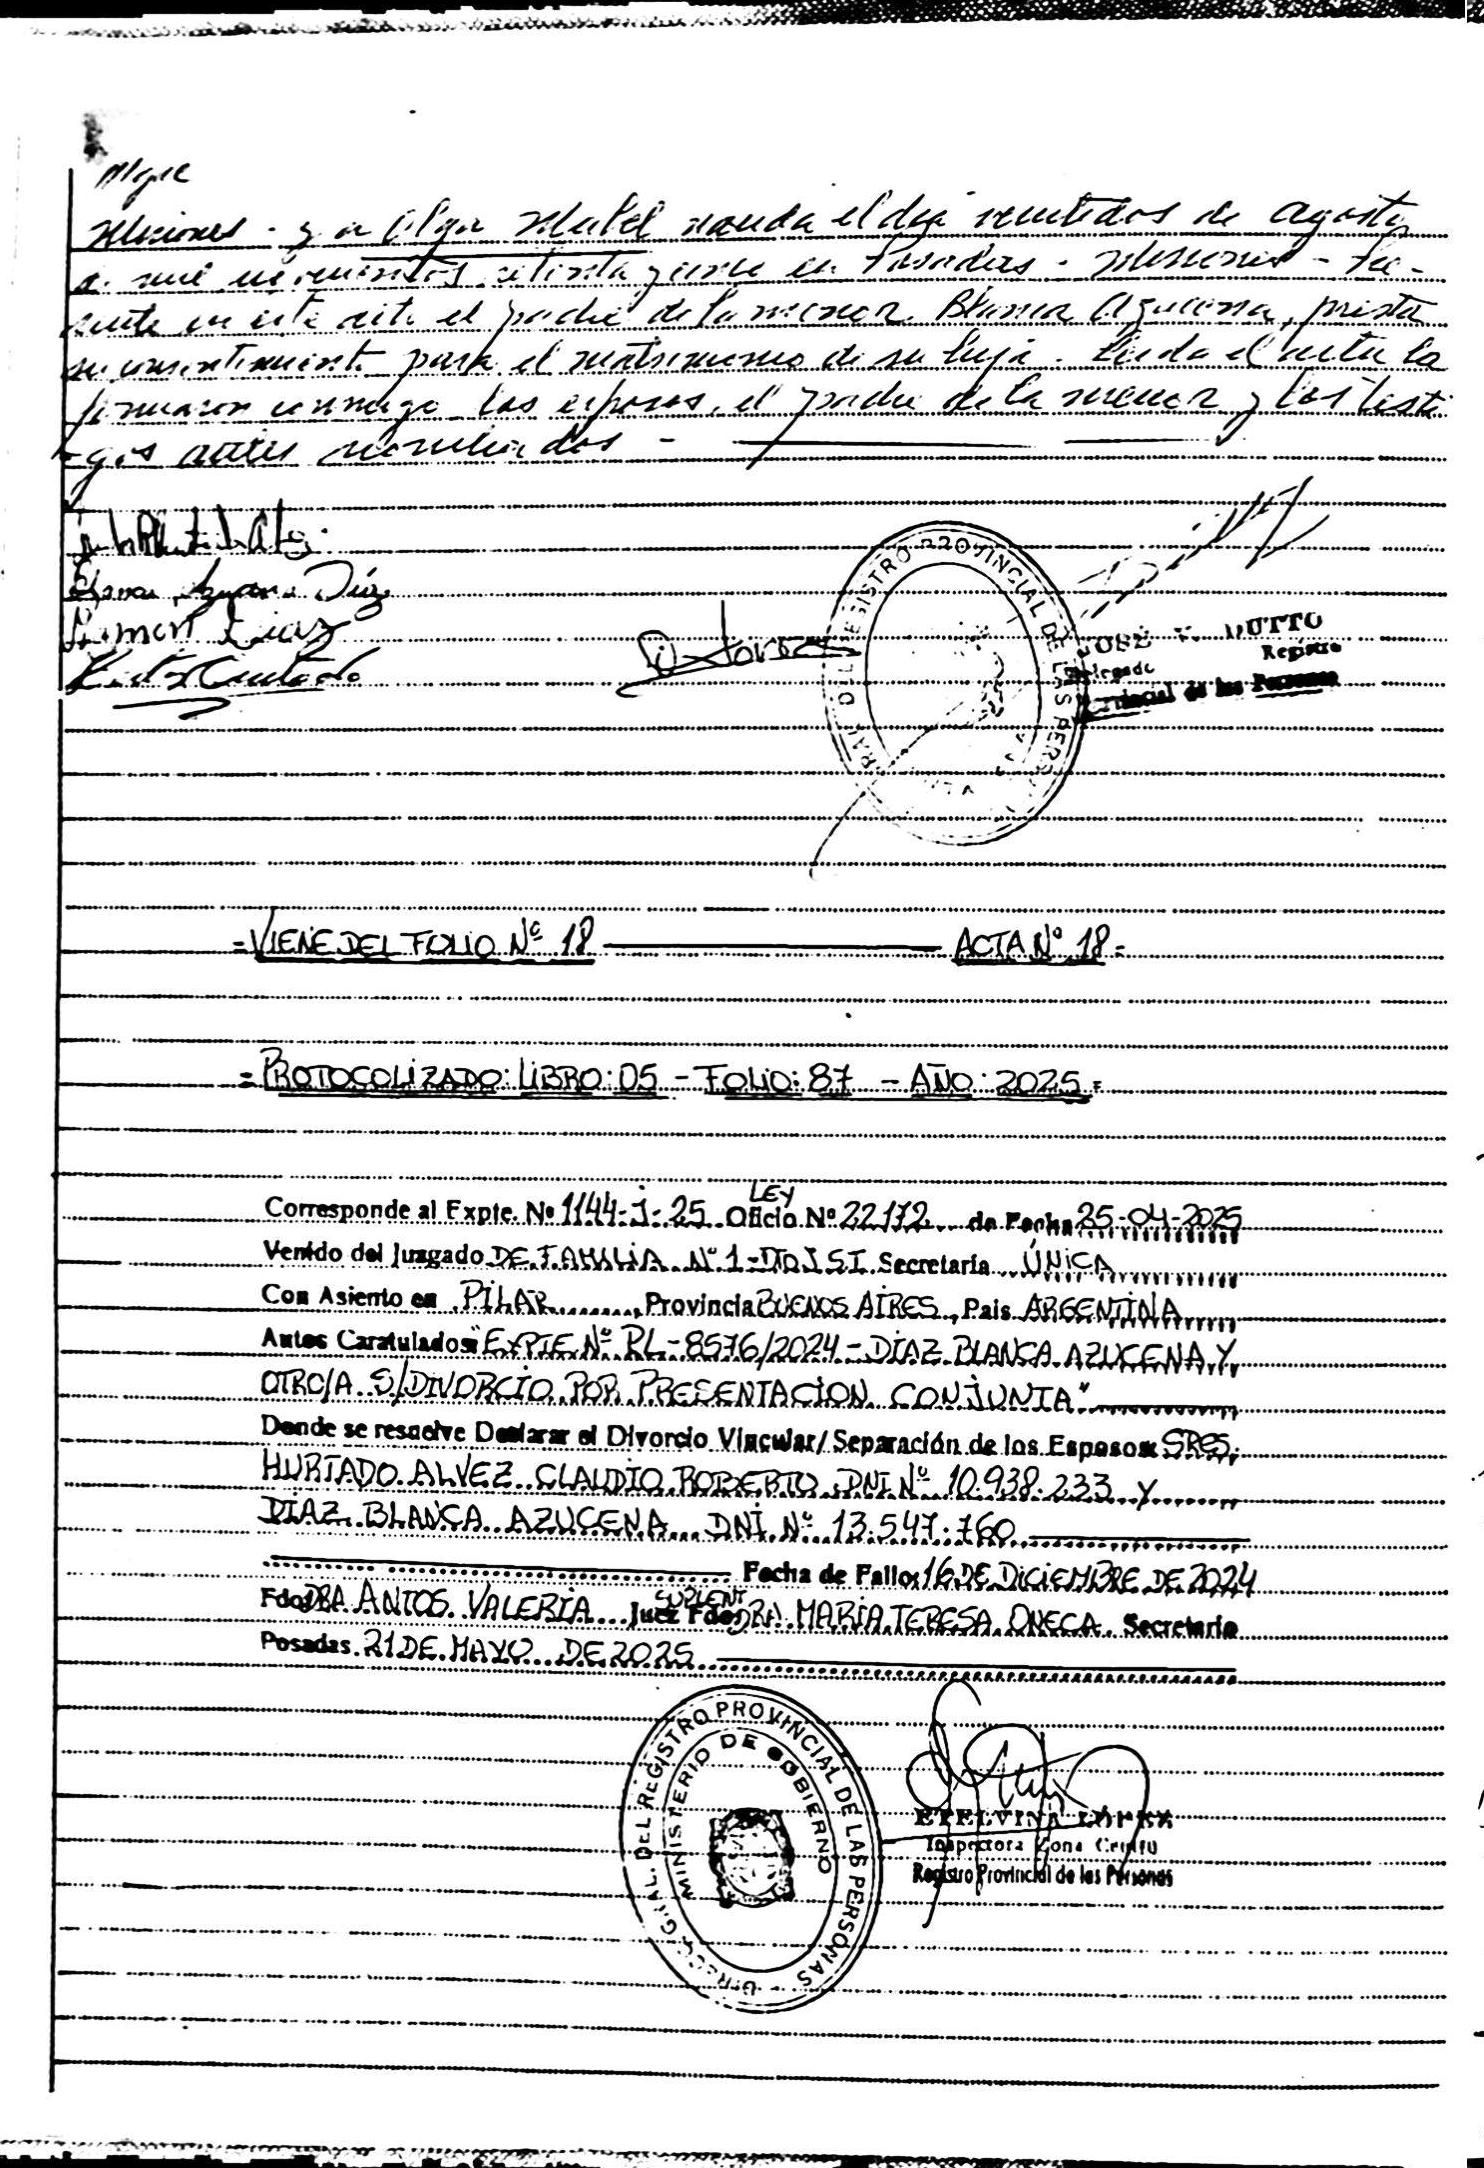 Misiones - y a Olga Mabel nacida el día veintidos de agosto
de mil novecientos setenta y en Posadas - Misiones -
en este acto el padre de la menor Blanca Azucena, presta
su consentimiento para el matrimonio de su hija. Leida el acta la
firmaron conmigo los esposos, el padre de la menor y los testi
-gos antes nombrados -
Blanca Azucena Díaz
Ramon Diaz
DEL REGISTRO PROVINCIAL DE LAS PERS
JOSÉ DUTTO
Delegado Registro
Provincial de las Personas
=VIENE DEL FOLIO Nº 18 ACTA Nº 18=
=PROTOCOLIZADO: LIBRO: 05 - FOLIO: 87 - AÑO: 2025=
Corresponde al Expte. Nº 1144-J-25 Oficio LEY Nº 22172 de Fecha 25-04-2025
Venido del Juzgado DE FAMILIA Nº 1 - Secretaría ÚNICA
Con Asiento en PILAR, Provincia BUENOS AIRES, Pais ARGENTINA
Autos Caratulados "EXPTE Nº PL-8576/2024 - DÍAZ BLANCA AZUCENA Y
OTRO/A S/DIVORCIO POR PRESENTACION CONJUNTA"
Donde se resuelve Declarar el Divorcio Vincular/Separación de los Esposos: SRES.
HURTADO ALVEZ CLAUDIO ROBERTO DNI Nº 10.938.233 Y
DÍAZ BLANCA AZUCENA DNI Nº 13.547.760
Fecha de Fallo: 16 DE DICIEMBRE DE 2024
Fdo: DRA ANTOS VALERIA Juez SUPLENT Fdo: DRA MARIA TERESA ONECA Secretario
Posadas 21 DE MAYO DE 2025
DIRECC. GRAL. DEL REGISTRO PROVINCIAL DE LAS PERSONAS
MINISTERIO DE GOBIERNO
ETELVINA LÓPEZ
Inspectora Zona Centro
Registro Provincial de las Personas